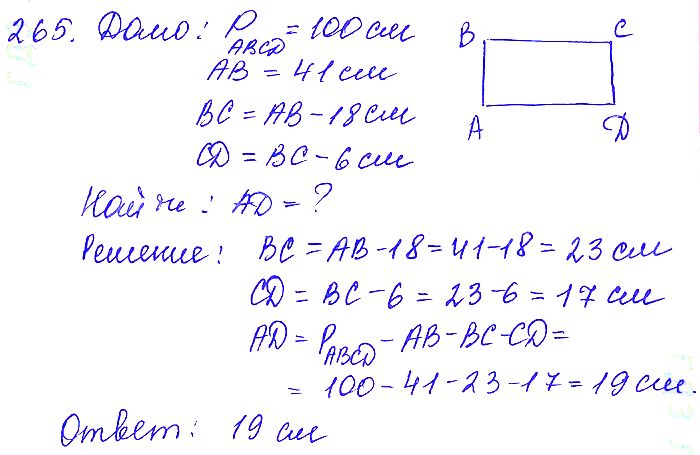 265. Дано: P_ABCD = 100 см
AB = 41 см
BC = AB - 18 см
CD = BC - 6 см
B C
A D
Найти: AD = ?
Решение: BC = AB - 18 = 41 - 18 = 23 см
CD = BC - 6 = 23 - 6 = 17 см
AD = P_ABCD - AB - BC - CD =
= 100 - 41 - 23 - 17 = 19 см.
Ответ: 19 см